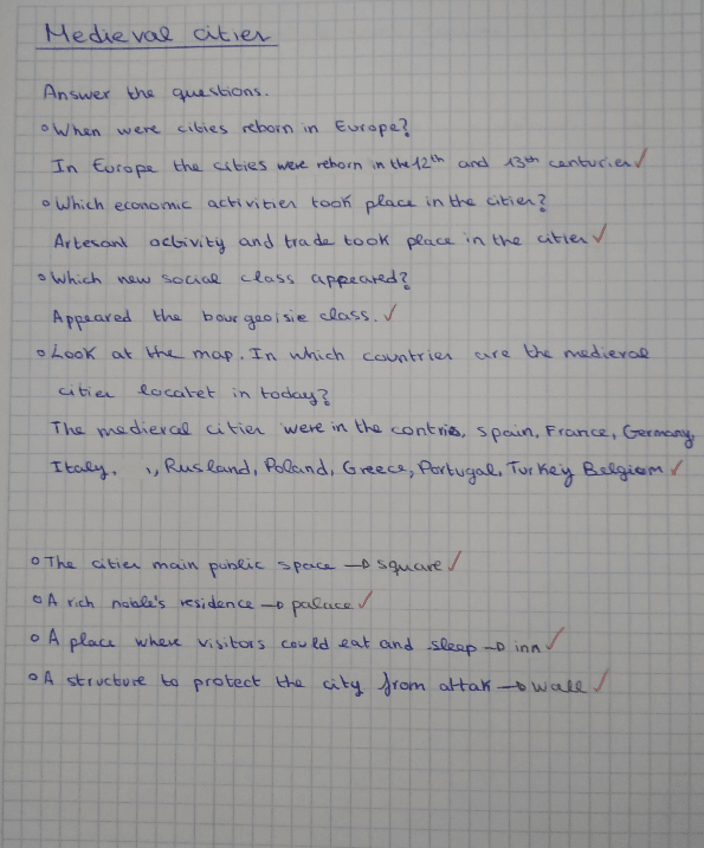 Medieval cities
Answer the questions.
○ When were cities reborn in Europe?
In Europe the cities were reborn in the 12th and 13th centuries ✓
○ Which economic activities took place in the cities?
Artesant activity and trade took place in the cities ✓
○ Which new social class appeared?
Appeared the bourgeoisie class. ✓
○ Look at the map. In which countries are the medieval
cities locatet in today?
The medieval cities were in the contries, Spain, France, Germany,
Italy, , Rusland, Poland, Greece, Portugal, Turkey Belgiom ✓
○ The cities main public space → square ✓
○ A rich noble's residence → palace ✓
○ A place where visitors could eat and sleep → inn ✓
○ A structure to protect the city from attak → wall ✓